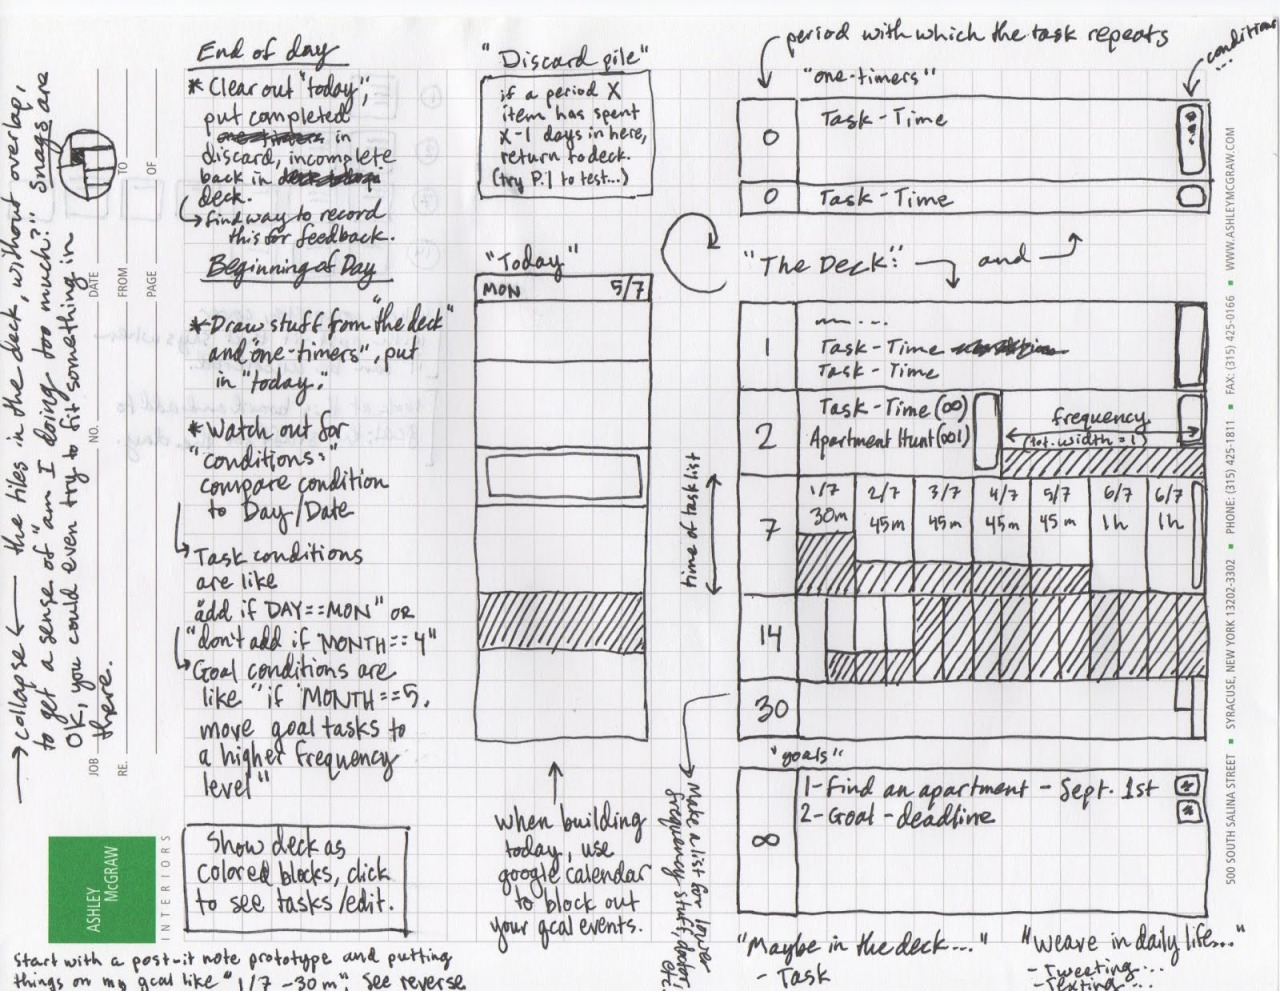 End of day
* Clear out "today",
put completed
in
discard, incomplete
back in
deck.
find way to record
this for feedback.
Beginning of Day
* Draw stuff from "the deck"
and "one-timers", put
in "today."
* Watch out for
"conditions:"
compare condition
to Day/Date
Task conditions
are like
add if DAY==MON" OR
"don't add if "MONTH==4"
Goal conditions are
like "if "MONTH==5,
move goal tasks to
a higher frequency
level"
Show deck as
colored blocks, click
to see tasks/edit.
start with a post-it note prototype and putting
things on my gcal like "1/7 - 30m". See reverse
"Discard pile"
if a period X
item has spent
X-1 days in here,
return to deck.
(try P.1 to test...)
"Today"
MON 5/7
when building
today, use
google calendar
to block out
your gcal events.
period with which the task repeats
conditions
...
"one-timers"
0 Task-Time
0 Task-Time
"The Deck:" and
1
...
Task-Time
Task-Time
2
Task-Time (∞)
Apartment Hunt (001)
frequency
(tot. width = 1)
time of task list
7
1/7 2/7 3/7 4/7 5/7 6/7 6/7
30m 45m 45m 45m 45m 1h 1h
14
30
Make a list for lower
frequency stuff, doctor
etc.
"goals"
∞
1-Find an apartment - Sept. 1st *
2-Goal-deadline *
"Maybe in the deck..."
- Task
"weave in daily life..."
- Tweeting...
- Texting...
→ collapse ← the tiles in the deck, without overlap,
to get a sense of "am I doing too much?" Snags are
OK, you could even try to fit something in
there.
JOB NO. DATE
RE. FROM TO
PAGE OF
ASHLEY
McGRAW
INTERIORS
500 SOUTH SALINA STREET ▪ SYRACUSE, NEW YORK 13202-3302 ▪ PHONE: (315) 425-1811 ▪ FAX: (315) 425-0166 ▪ WWW.ASHLEYMCGRAW.COM